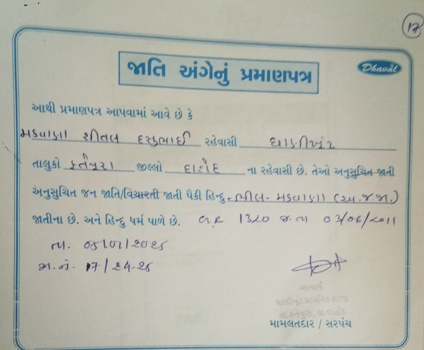 17
જાતિ અંગેનું પ્રમાણપત્ર
Dhaval
આથી પ્રમાણપત્ર આપવામાં આવે છે કે
મકવાણા શીતલ દસુભાઈ રહેવાસી
તાલુકો ફતેપુરા જીલ્લો દાહોદ ના રહેવાસી છે. તેઓ અનુસુચિત જાતી
અનુસુચિત જન જાતિ/વિચારતી જાતી પૈકી હિન્દુ-ભીલ- મકવાણા (અ.જ.જા.)
જાતીના છે. અને હિન્દુ ધર્મ પાળે છે. 1320 03/06/2011
તા.
17/24-25
મામલતદાર / સરપંચ